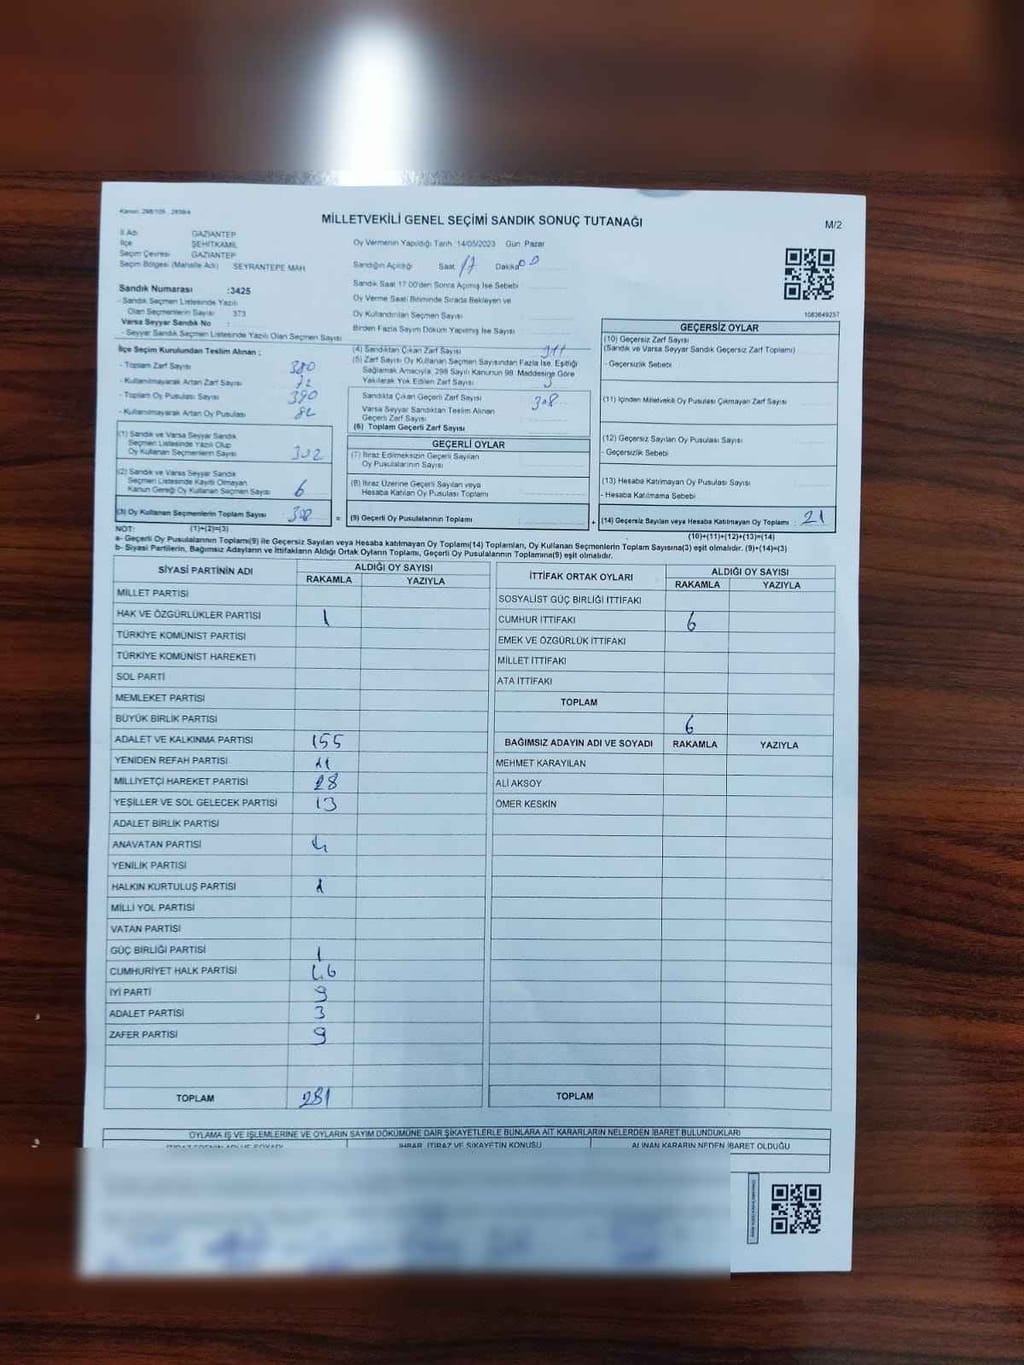 Kanun: 298/105 2839/4
MİLLETVEKİLİ GENEL SEÇİMİ SANDIK SONUÇ TUTANAĞI
M/2
İl Adı GAZİANTEP
İlçe ŞEHİTKAMİL
Seçim Çevresi GAZİANTEP
Seçim Bölgesi (Mahalle Adı) SEYRANTEPE MAH.
Oy Vermenin Yapıldığı Tarih 14/05/2023 Gün Pazar
Sandığın Açıldığı Saat 17 Dakika 00
Sandık Saat 17:00'den Sonra Açılmış İse Sebebi
Oy Verme Saati Bitiminde Sırada Bekleyen ve
Oy Kullandırılan Seçmen Sayısı
Birden Fazla Sayım Döküm Yapılmış İse Sayısı
Sandık Numarası :3425
- Sandık Seçmen Listesinde Yazılı
Olan Seçmenlerin Sayısı 373
Varsa Seyyar Sandık No :
- Seyyar Sandık Seçmen Listesinde Yazılı Olan Seçmen Sayısı
1083649257
İlçe Seçim Kurulundan Teslim Alınan :
- Toplam Zarf Sayısı 380
- Kullanılmayarak Artan Zarf Sayısı 72
- Toplam Oy Pusulası Sayısı 390
- Kullanılmayarak Artan Oy Pusulası 82
(1) Sandık ve Varsa Seyyar Sandık
Seçmen Listesinde Yazılı Olup
Oy Kullanan Seçmenlerin Sayısı 302
(2) Sandık ve Varsa Seyyar Sandık
Seçmen Listesinde Kayıtlı Olmayan
Kanun Gereği Oy Kullanan Seçmen Sayısı 6
(3) Oy Kullanan Seçmenlerin Toplam Sayısı 308
(4) Sandıktan Çıkan Zarf Sayısı 311
(5) Zarf Sayısı Oy Kullanan Seçmen Sayısından Fazla İse, Eşitliği
Sağlamak Amacıyla, 298 Sayılı Kanunun 98. Maddesine Göre
Yakılarak Yok Edilen Zarf Sayısı 3
Sandıkta Çıkan Geçerli Zarf Sayısı 308
Varsa Seyyar Sandıktan Teslim Alınan
Geçerli Zarf Sayısı
(6) Toplam Geçerli Zarf Sayısı
GEÇERLİ OYLAR
(7) İtiraz Edilmeksizin Geçerli Sayılan
Oy Pusulalarının Sayısı
(8) İtiraz Üzerine Geçerli Sayılan veya
Hesaba Katılan Oy Pusulası Toplamı
= (9) Geçerli Oy Pusulalarının Toplamı
GEÇERSİZ OYLAR
(10) Geçersiz Zarf Sayısı
(Sandık ve Varsa Seyyar Sandık Geçersiz Zarf Toplamı)
- Geçersizlik Sebebi
(11) İçinden Milletvekili Oy Pusulası Çıkmayan Zarf Sayısı
(12) Geçersiz Sayılan Oy Pusulası Sayısı
- Geçersizlik Sebebi
(13) Hesaba Katılmayan Oy Pusulası Sayısı
- Hesaba Katılmama Sebebi
+ (14) Geçersiz Sayılan veya Hesaba Katılmayan Oy Toplamı : 21
NOT: (1)+(2)=(3)
(10)+(11)+(12)+(13)=(14)
a- Geçerli Oy Pusulalarının Toplamı(9) ile Geçersiz Sayılan veya Hesaba katılmayan Oy Toplamı(14) Toplamları, Oy Kullanan Seçmenlerin Toplam Sayısına(3) eşit olmalıdır. (9)+(14)=(3)
b- Siyasi Partilerin, Bağımsız Adayların ve İttifakların Aldığı Ortak Oyların Toplamı, Geçerli Oy Pusulalarının Toplamına(9) eşit olmalıdır.
SİYASİ PARTİNİN ADI ALDIĞI OY SAYISI
RAKAMLA YAZIYLA
MİLLET PARTİSİ
HAK VE ÖZGÜRLÜKLER PARTİSİ 1
TÜRKİYE KOMÜNİST PARTİSİ
TÜRKİYE KOMÜNİST HAREKETİ
SOL PARTİ
MEMLEKET PARTİSİ
BÜYÜK BİRLİK PARTİSİ
ADALET VE KALKINMA PARTİSİ 155
YENİDEN REFAH PARTİSİ
MİLLİYETÇİ HAREKET PARTİSİ 28
YEŞİLLER VE SOL GELECEK PARTİSİ 13
ADALET BİRLİK PARTİSİ
ANAVATAN PARTİSİ
YENİLİK PARTİSİ
HALKIN KURTULUŞ PARTİSİ
MİLLİ YOL PARTİSİ
VATAN PARTİSİ
GÜÇ BİRLİĞİ PARTİSİ 1
CUMHURİYET HALK PARTİSİ
İYİ PARTİ 9
ADALET PARTİSİ 3
ZAFER PARTİSİ 9
TOPLAM 281
İTTİFAK ORTAK OYLARI ALDIĞI OY SAYISI
RAKAMLA YAZIYLA
SOSYALİST GÜÇ BİRLİĞİ İTTİFAKI
CUMHUR İTTİFAKI 6
EMEK VE ÖZGÜRLÜK İTTİFAKI
MİLLET İTTİFAKI
ATA İTTİFAKI
TOPLAM
6
BAĞIMSIZ ADAYIN ADI VE SOYADI RAKAMLA YAZIYLA
MEHMET KARAYILAN
ALİ AKSOY
ÖMER KESKİN
TOPLAM
OYLAMA İŞ VE İŞLEMLERİNE VE OYLARIN SAYIM DÖKÜMÜNE DAİR ŞİKAYETLERLE BUNLARA AİT KARARLARIN NELERDEN İBARET BULUNDUKLARI
İHBAR, İTİRAZ VE ŞİKAYETİN KONUSU ALINAN KARARIN NEDEN İBARET OLDUĞU